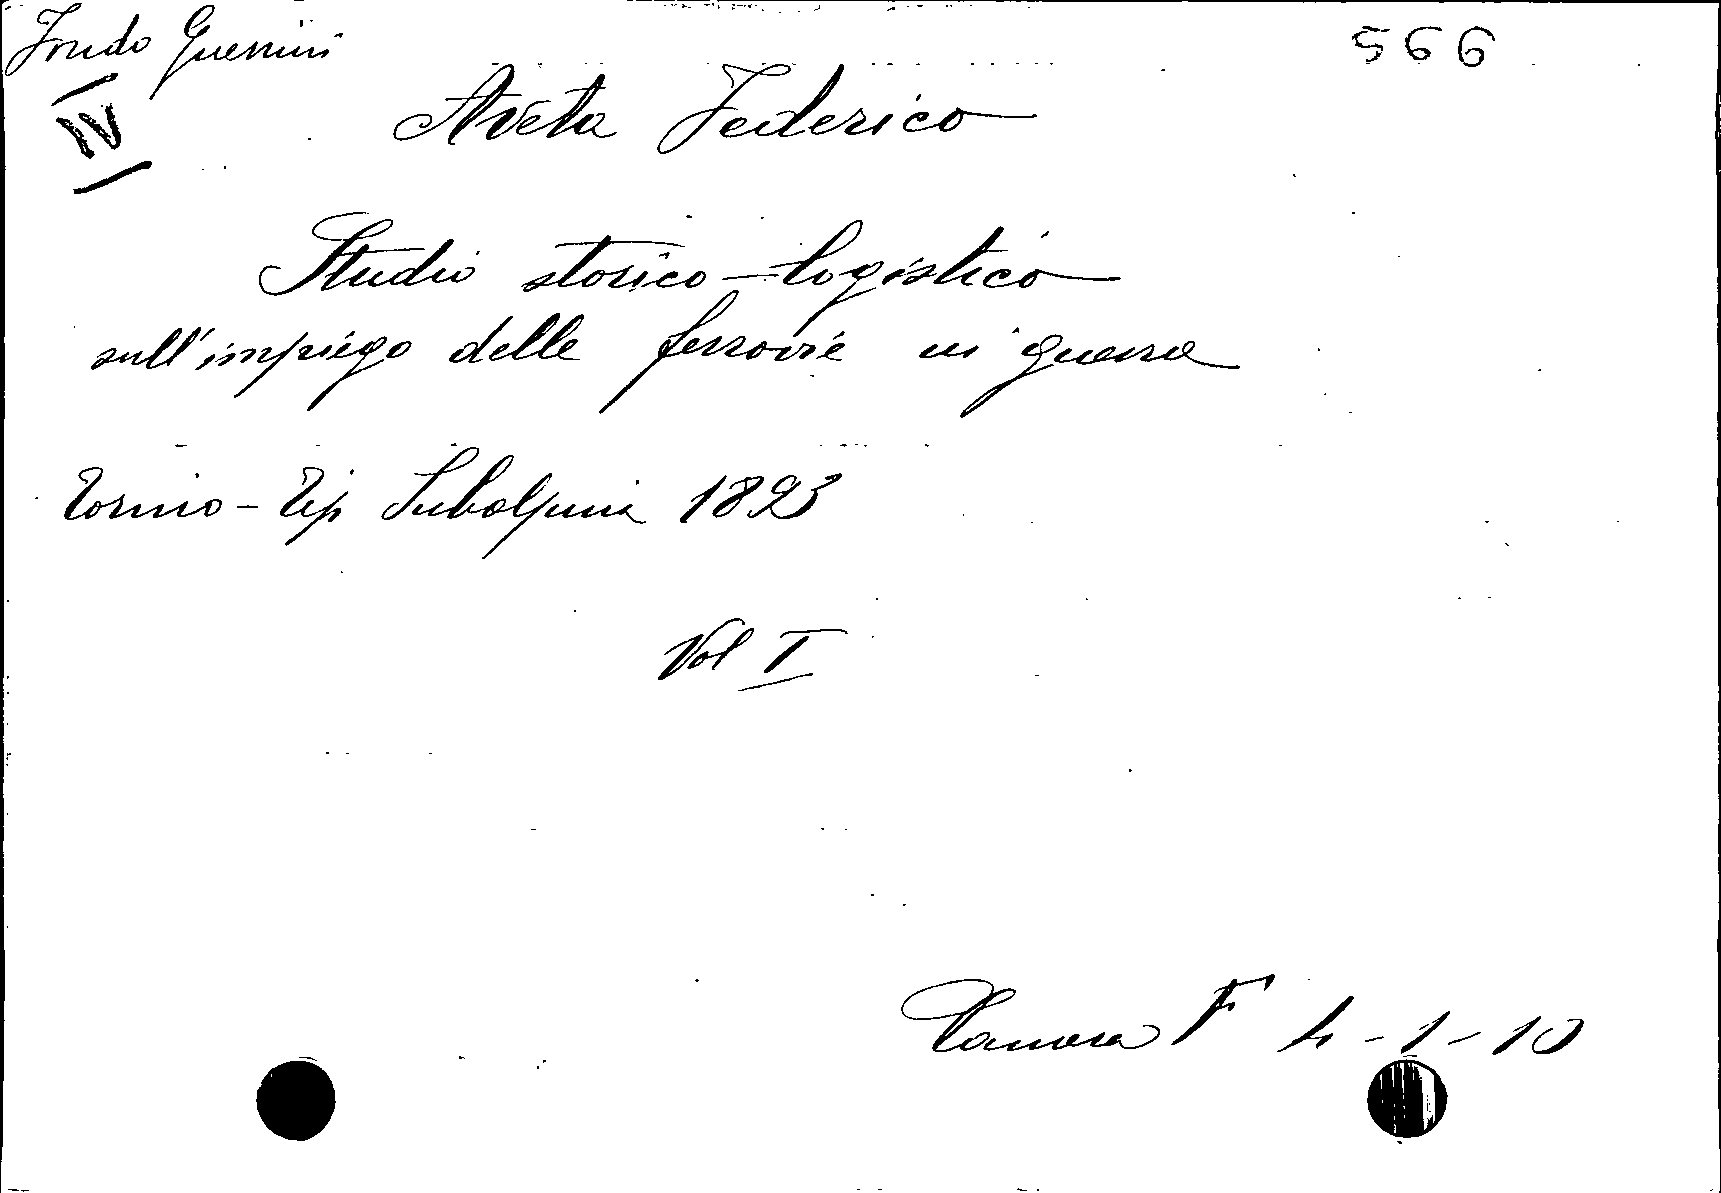 Fondo Guerrini
566
IV
Aveta Federico
Studio storico-logistico
sull'impiego delle ferrovie in guerra
Torino - Tip Subalpina 1893
Vol I
Camera F 4-1-10